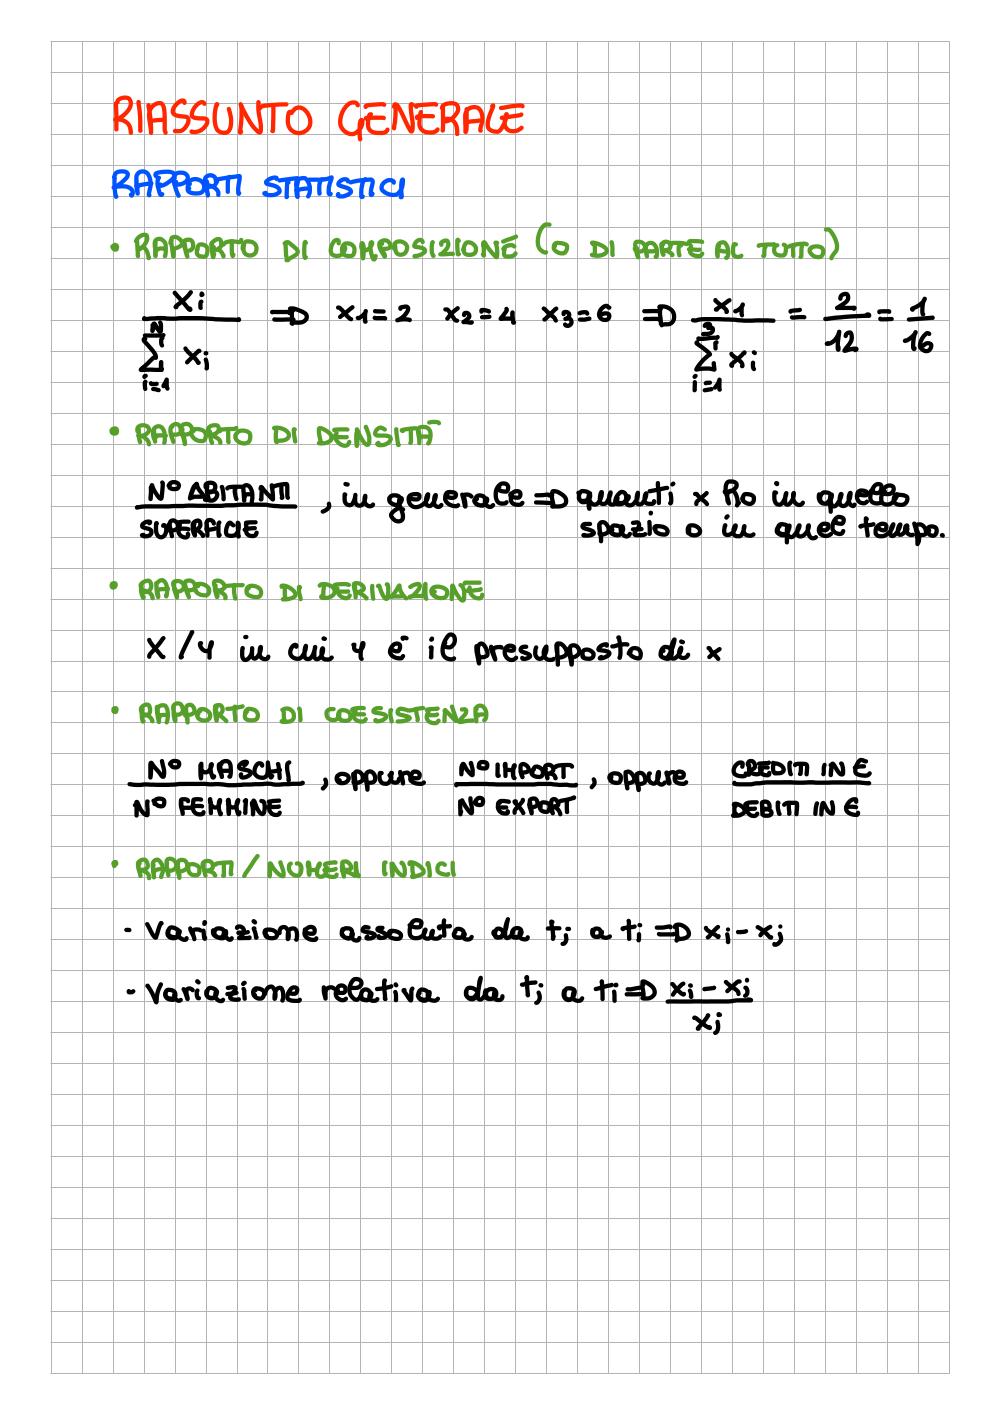 RIASSUNTO GENERALE
RAPPORTI STATISTICI
• RAPPORTO DI COMPOSIZIONE (O DI PARTE AL TUTTO)
xi / ∑ i=1 N xi => x1=2 x2=4 x3=6 => x1 / ∑ i=1 3 xi = 2/12 = 1/16
• RAPPORTO DI DENSITÀ
N° ABITANTI / SUPERFICIE , in generale => quanti x ho in quello
spazio o in quel tempo.
• RAPPORTO DI DERIVAZIONE
X / Y in cui Y è il presupposto di x
• RAPPORTO DI COESISTENZA
N° MASCHI / N° FEMMINE , oppure N° IMPORT / N° EXPORT , oppure CREDITI IN € / DEBITI IN €
• RAPPORTI / NUMERI INDICI
- Variazione assoluta da tj a ti => xi - xj
- Variazione relativa da tj a ti => xi - xj / xj